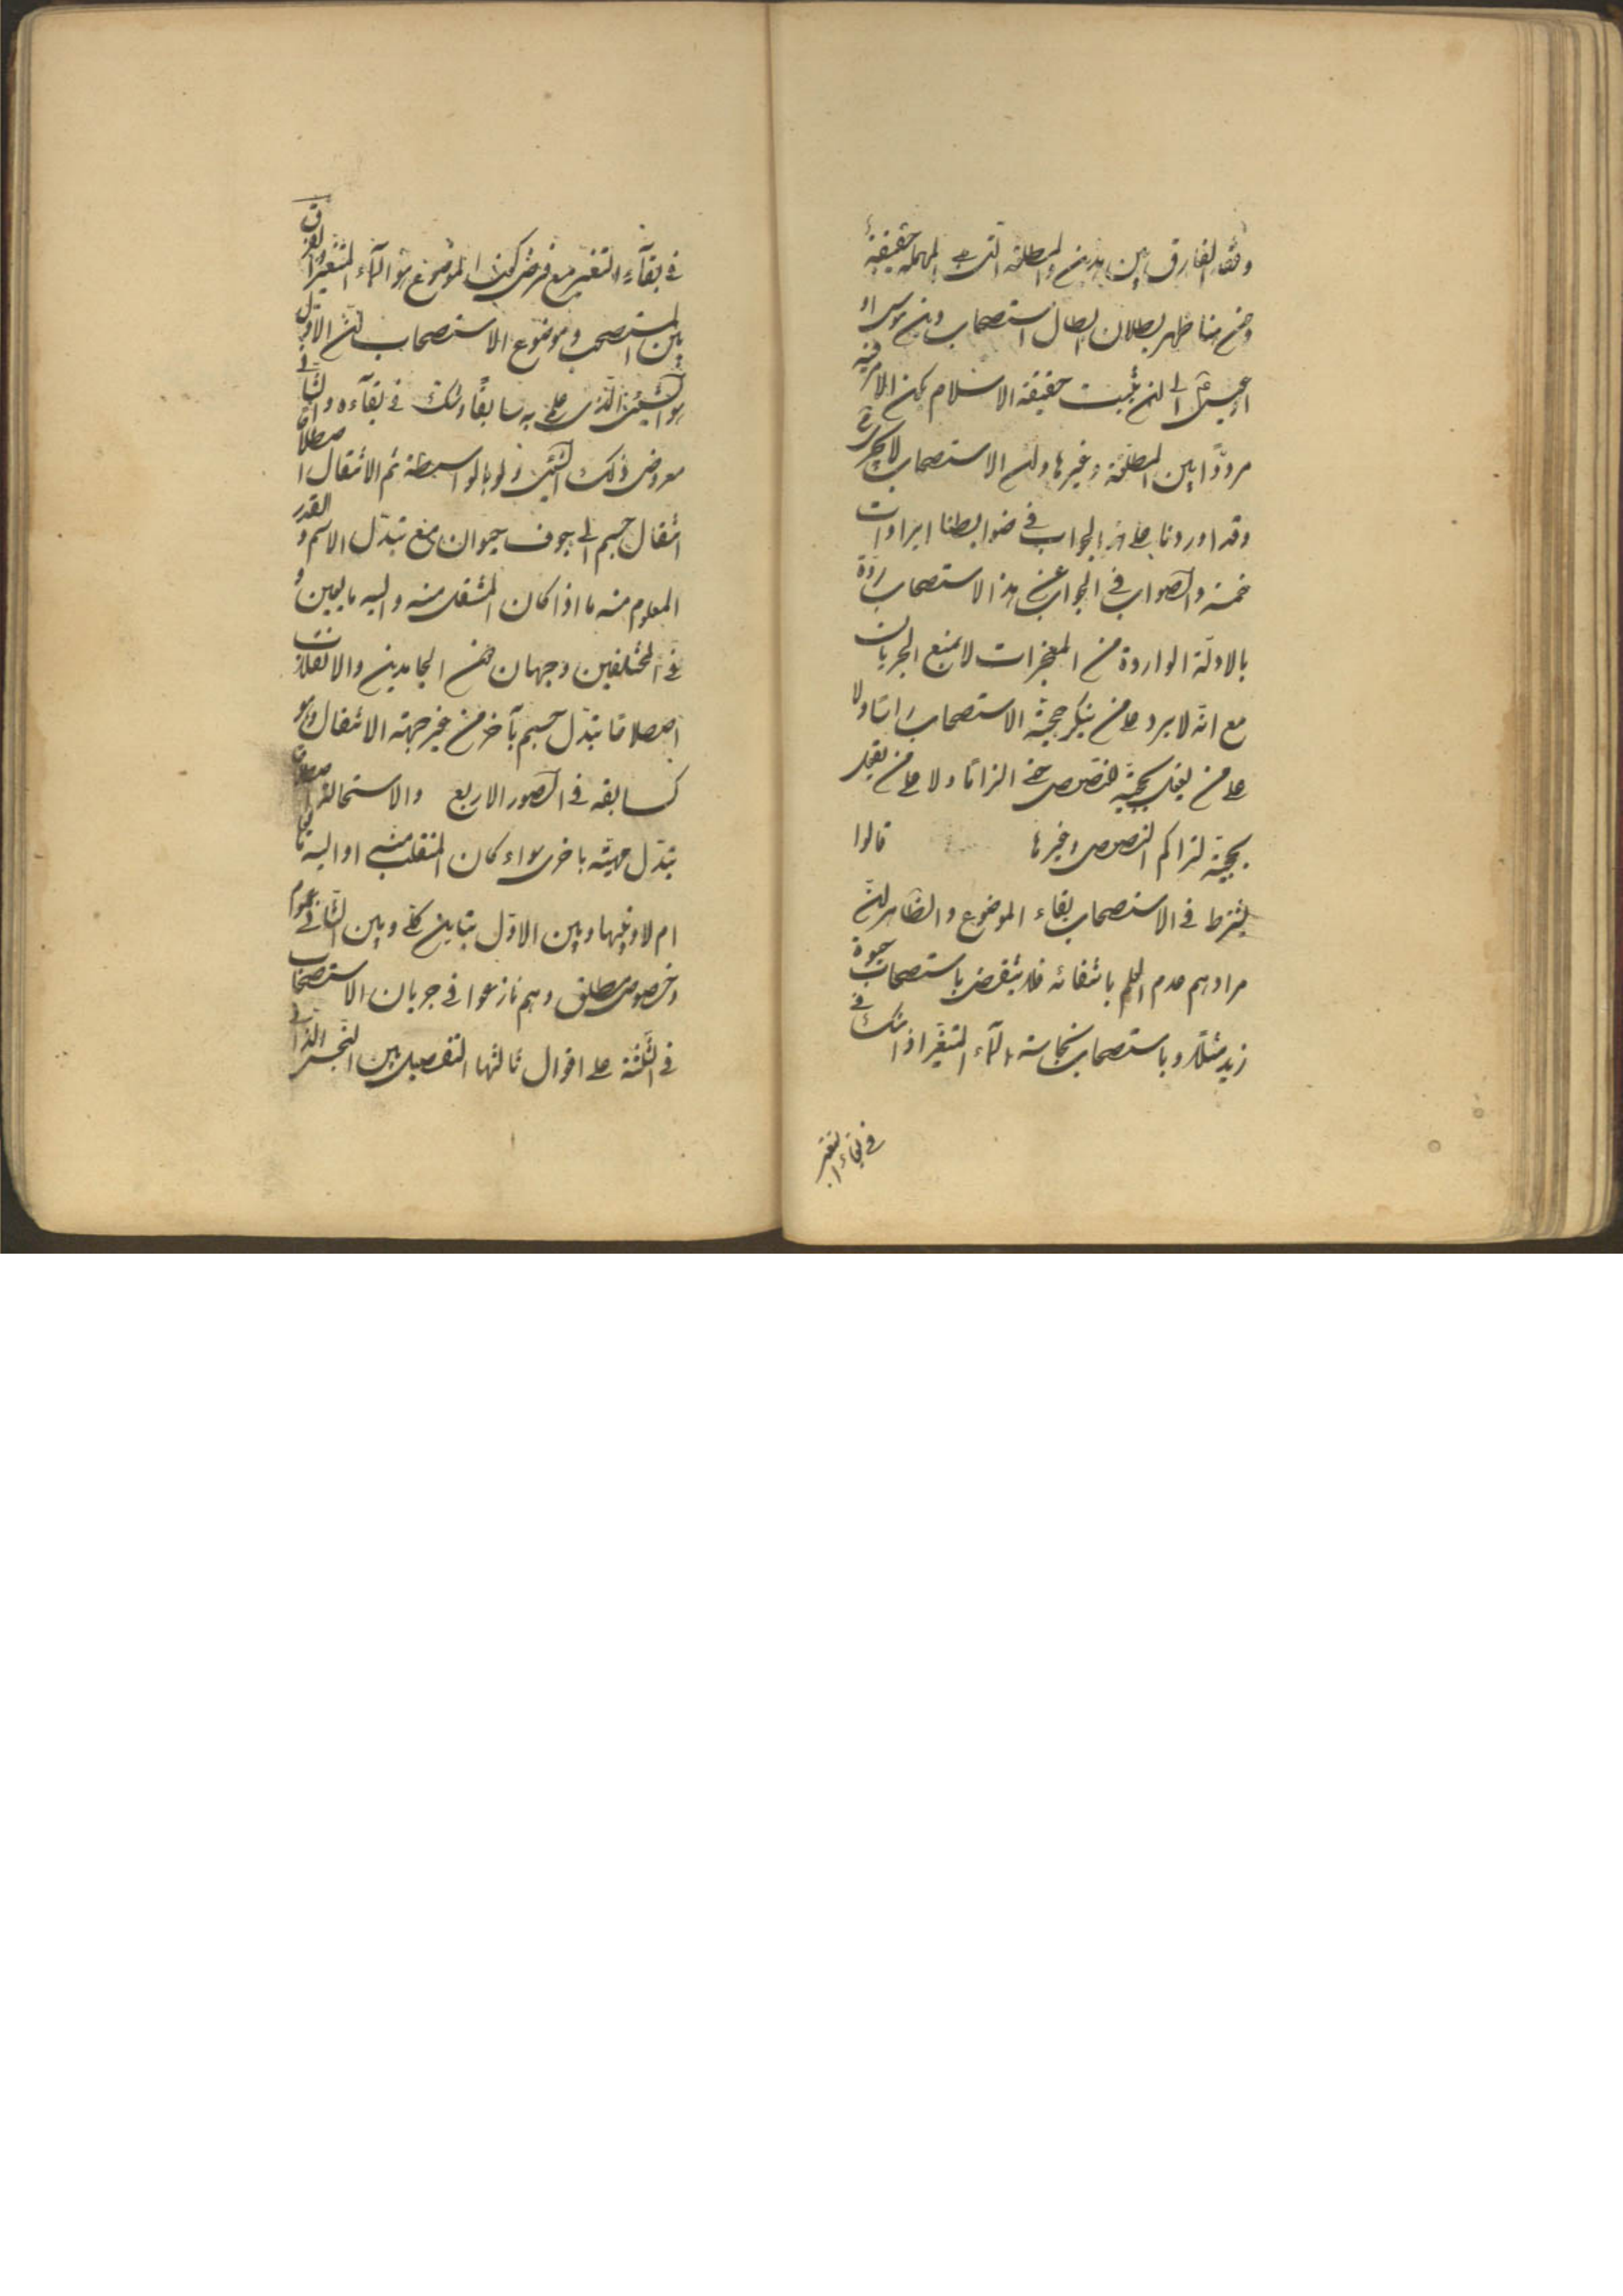 وفقد الفارق بين هذين والمطلقة التي هي المهملة حقيقة
ومن هنا ظهر بطلان ابطال استصحاب دين موسى او
عيسى الى ان يثبت حقيقة الاسلام بكون الامر فيه
مرددا بين المطلقة وغيرها وان الاستصحاب لا يجري ح
وقد اوردنا على هذا الجواب في ضوابطنا ايرادات
خمسة والصواب في الجواب عن هذا الاستصحاب رده
بالادلة الواردة من المعجزات لا بمنع الجريان
مع انه لا يرد على من ينكر حجية الاستصحاب راسا ولا
على من يقول بحجية النصوص حتى الزاما ولا على من يقول
بحجية لتراكم النصوص وغيرها قالوا
يشترط في الاستصحاب بقاء الموضوع والظاهر ان
مرادهم عدم العلم بانتفائه فلا ينتقض باستصحاب حيوة
زيد مثلا وباستصحاب نجاسة الماء المتغير اذا شك في
في بقاء التغير
في بقاء التغير مع فرض كون الموضوع هو الماء المتغير والفرق
بين المستصحب وموضوع الاستصحاب ان الاول
هو الشيء الذي علم به سابقا وشك في بقاءه والثاني
معروض ذلك الشيء ولو بالواسطة ثم الانتقال اصطلاحا
انتقال جسم الى جوف حيوان مع تبدل الاسم و القدر
المعلوم منه ما اذا كان المنتقل منه واليه مايعين و
في المختلفين وجهان من الجامدين والانقلاب
اصطلاحا تبدل جسم بآخر من غير جهة الانتقال وهو
كسابقه في الصور الاربع والاستحالة اصطلاحا
تبدل مهية باخرى سواء كان المنقلب منه او اليه مايعا
ام لا وبينها وبين الاول تباين كلي وبين الثاني عموم
وخصوص مطلق وهم نازعوا في جريان الاستصحاب
في الثلثة على اقوال ثالثها التفصيل بين النجس الذاتي